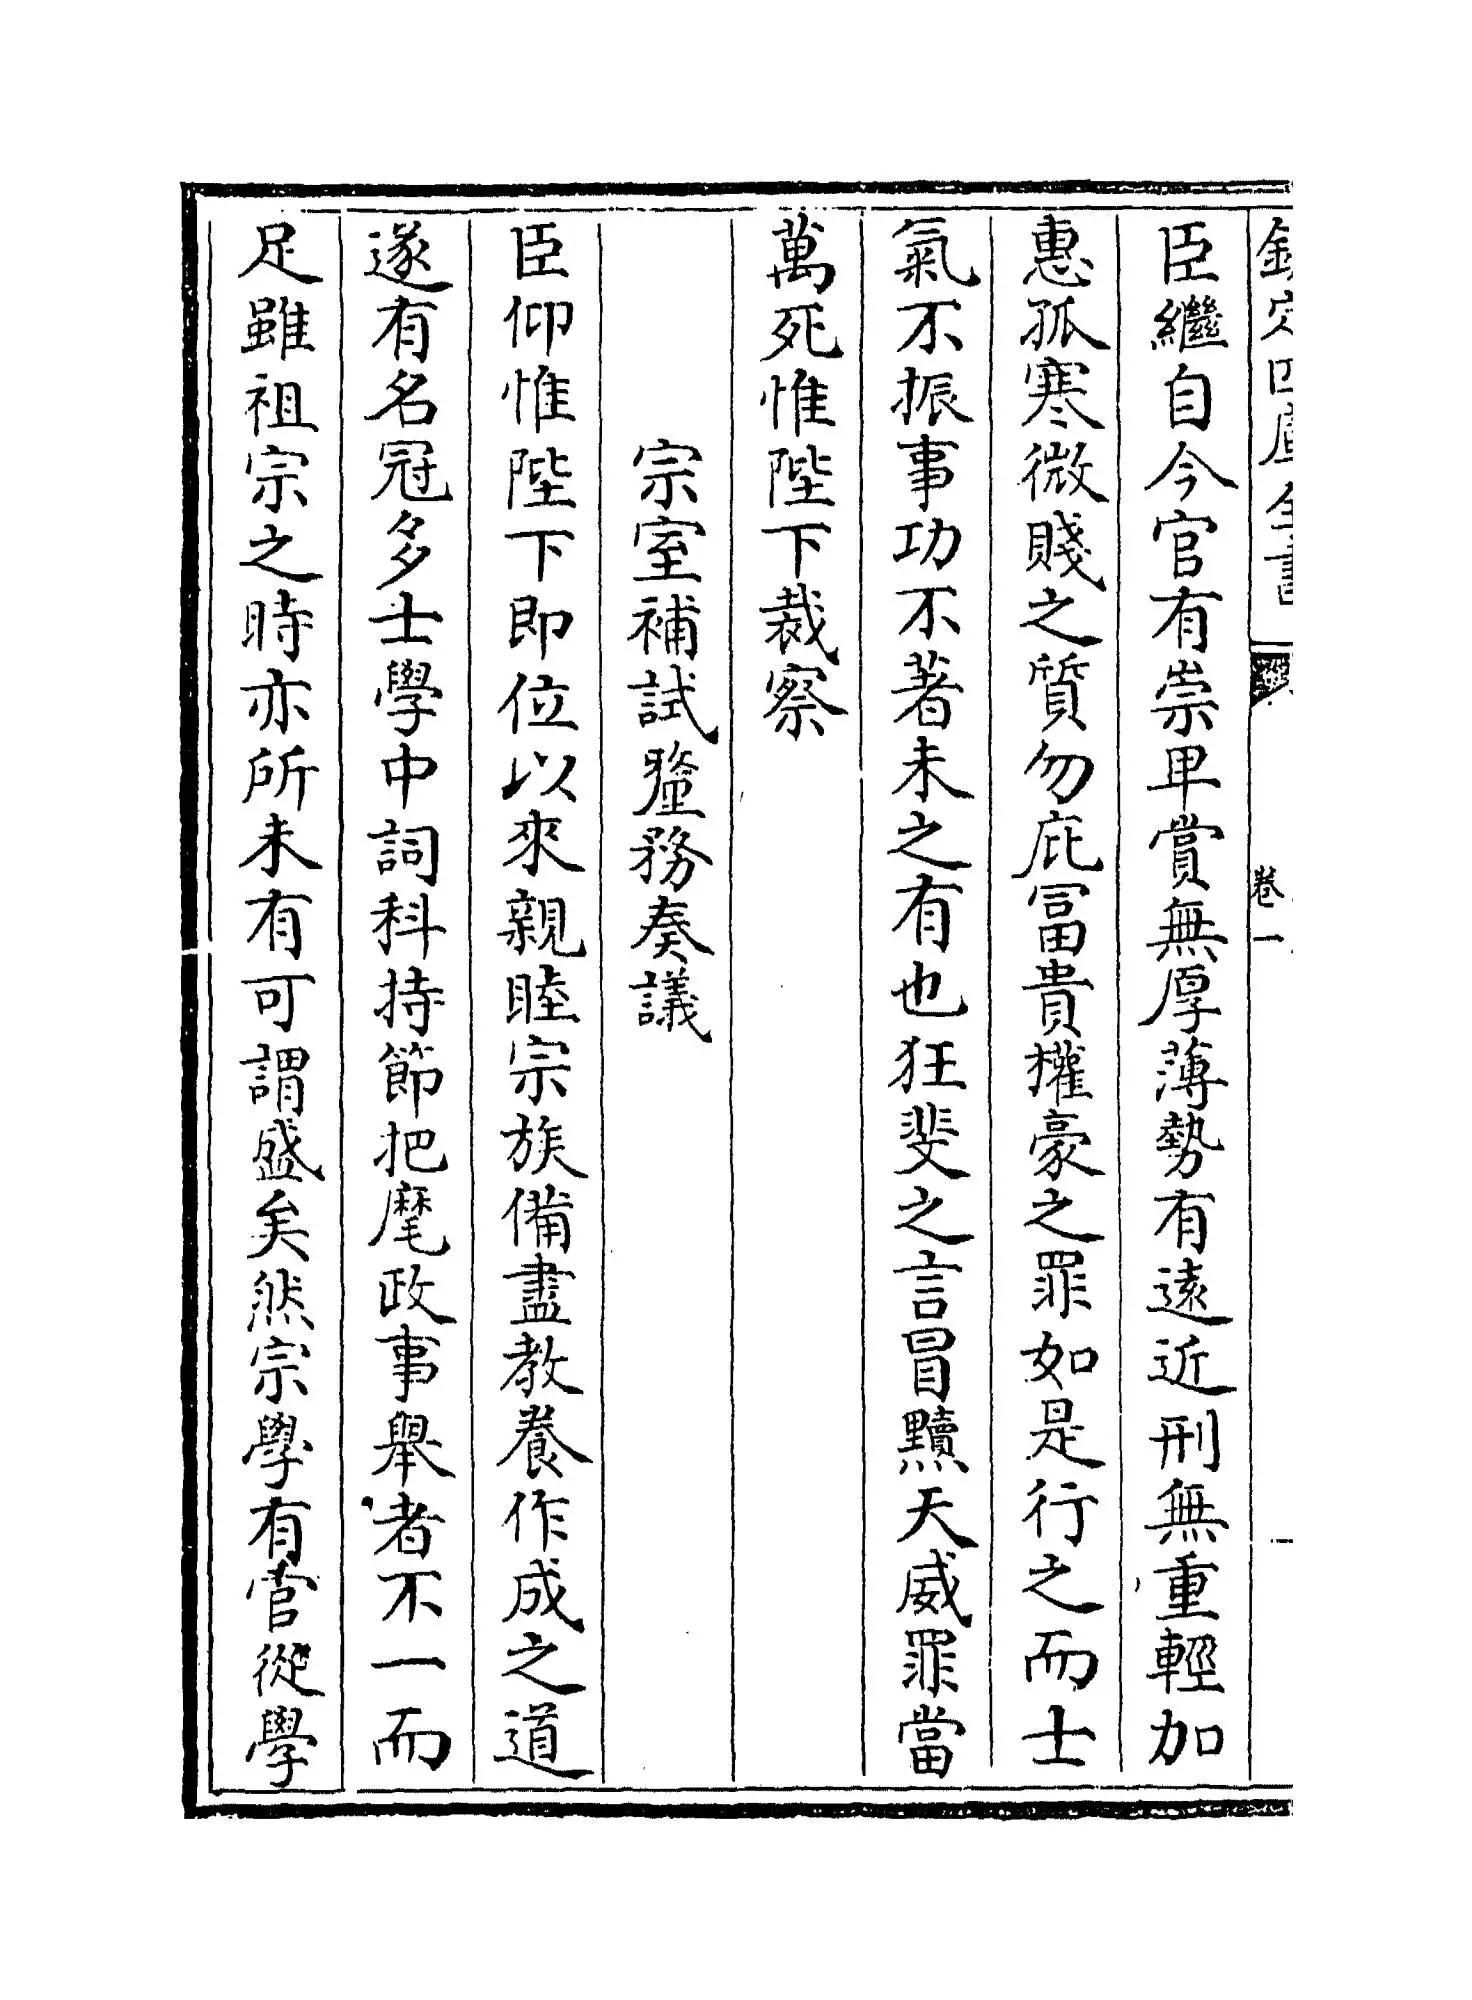 欽定四庫全書
卷一
臣繼自今官有崇卑賞無厚薄勢有遠近刑無重輕加
惠孤寒微賤之質勿庇富貴權豪之罪如是行之而士
氣不振事功不著未之有也狂斐之言冒黷天威罪當
萬死惟陛下裁察
宗室補試釐務奏議
臣仰惟陛下即位以來親睦宗族備盡教養作成之道
遂有名冠多士學中詞科持節把麾政事舉者不一而
足雖祖宗之時亦所未有可謂盛矣然宗學有官從學